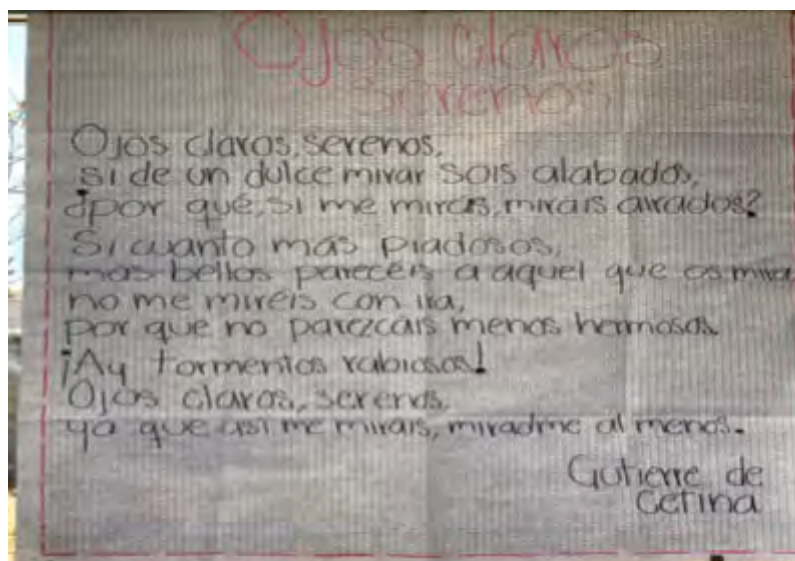 Ojos claros
serenos
Ojos claros, serenos,
si de un dulce mirar sois alabados,
¿por qué, si me miras, mirais airados?
Si cuanto más piadosos,
mas bellos parecéis a aquel que os mira
no me miréis con ira,
por que no parezcais menos hermosos.
¡Ay tormentos rabiosos!
Ojos claros, serenos,
ya que asi me mirais, miradme al menos.
Gutierre de
Cetina